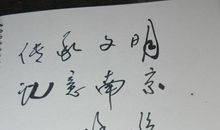 传承文明
记忆南京.